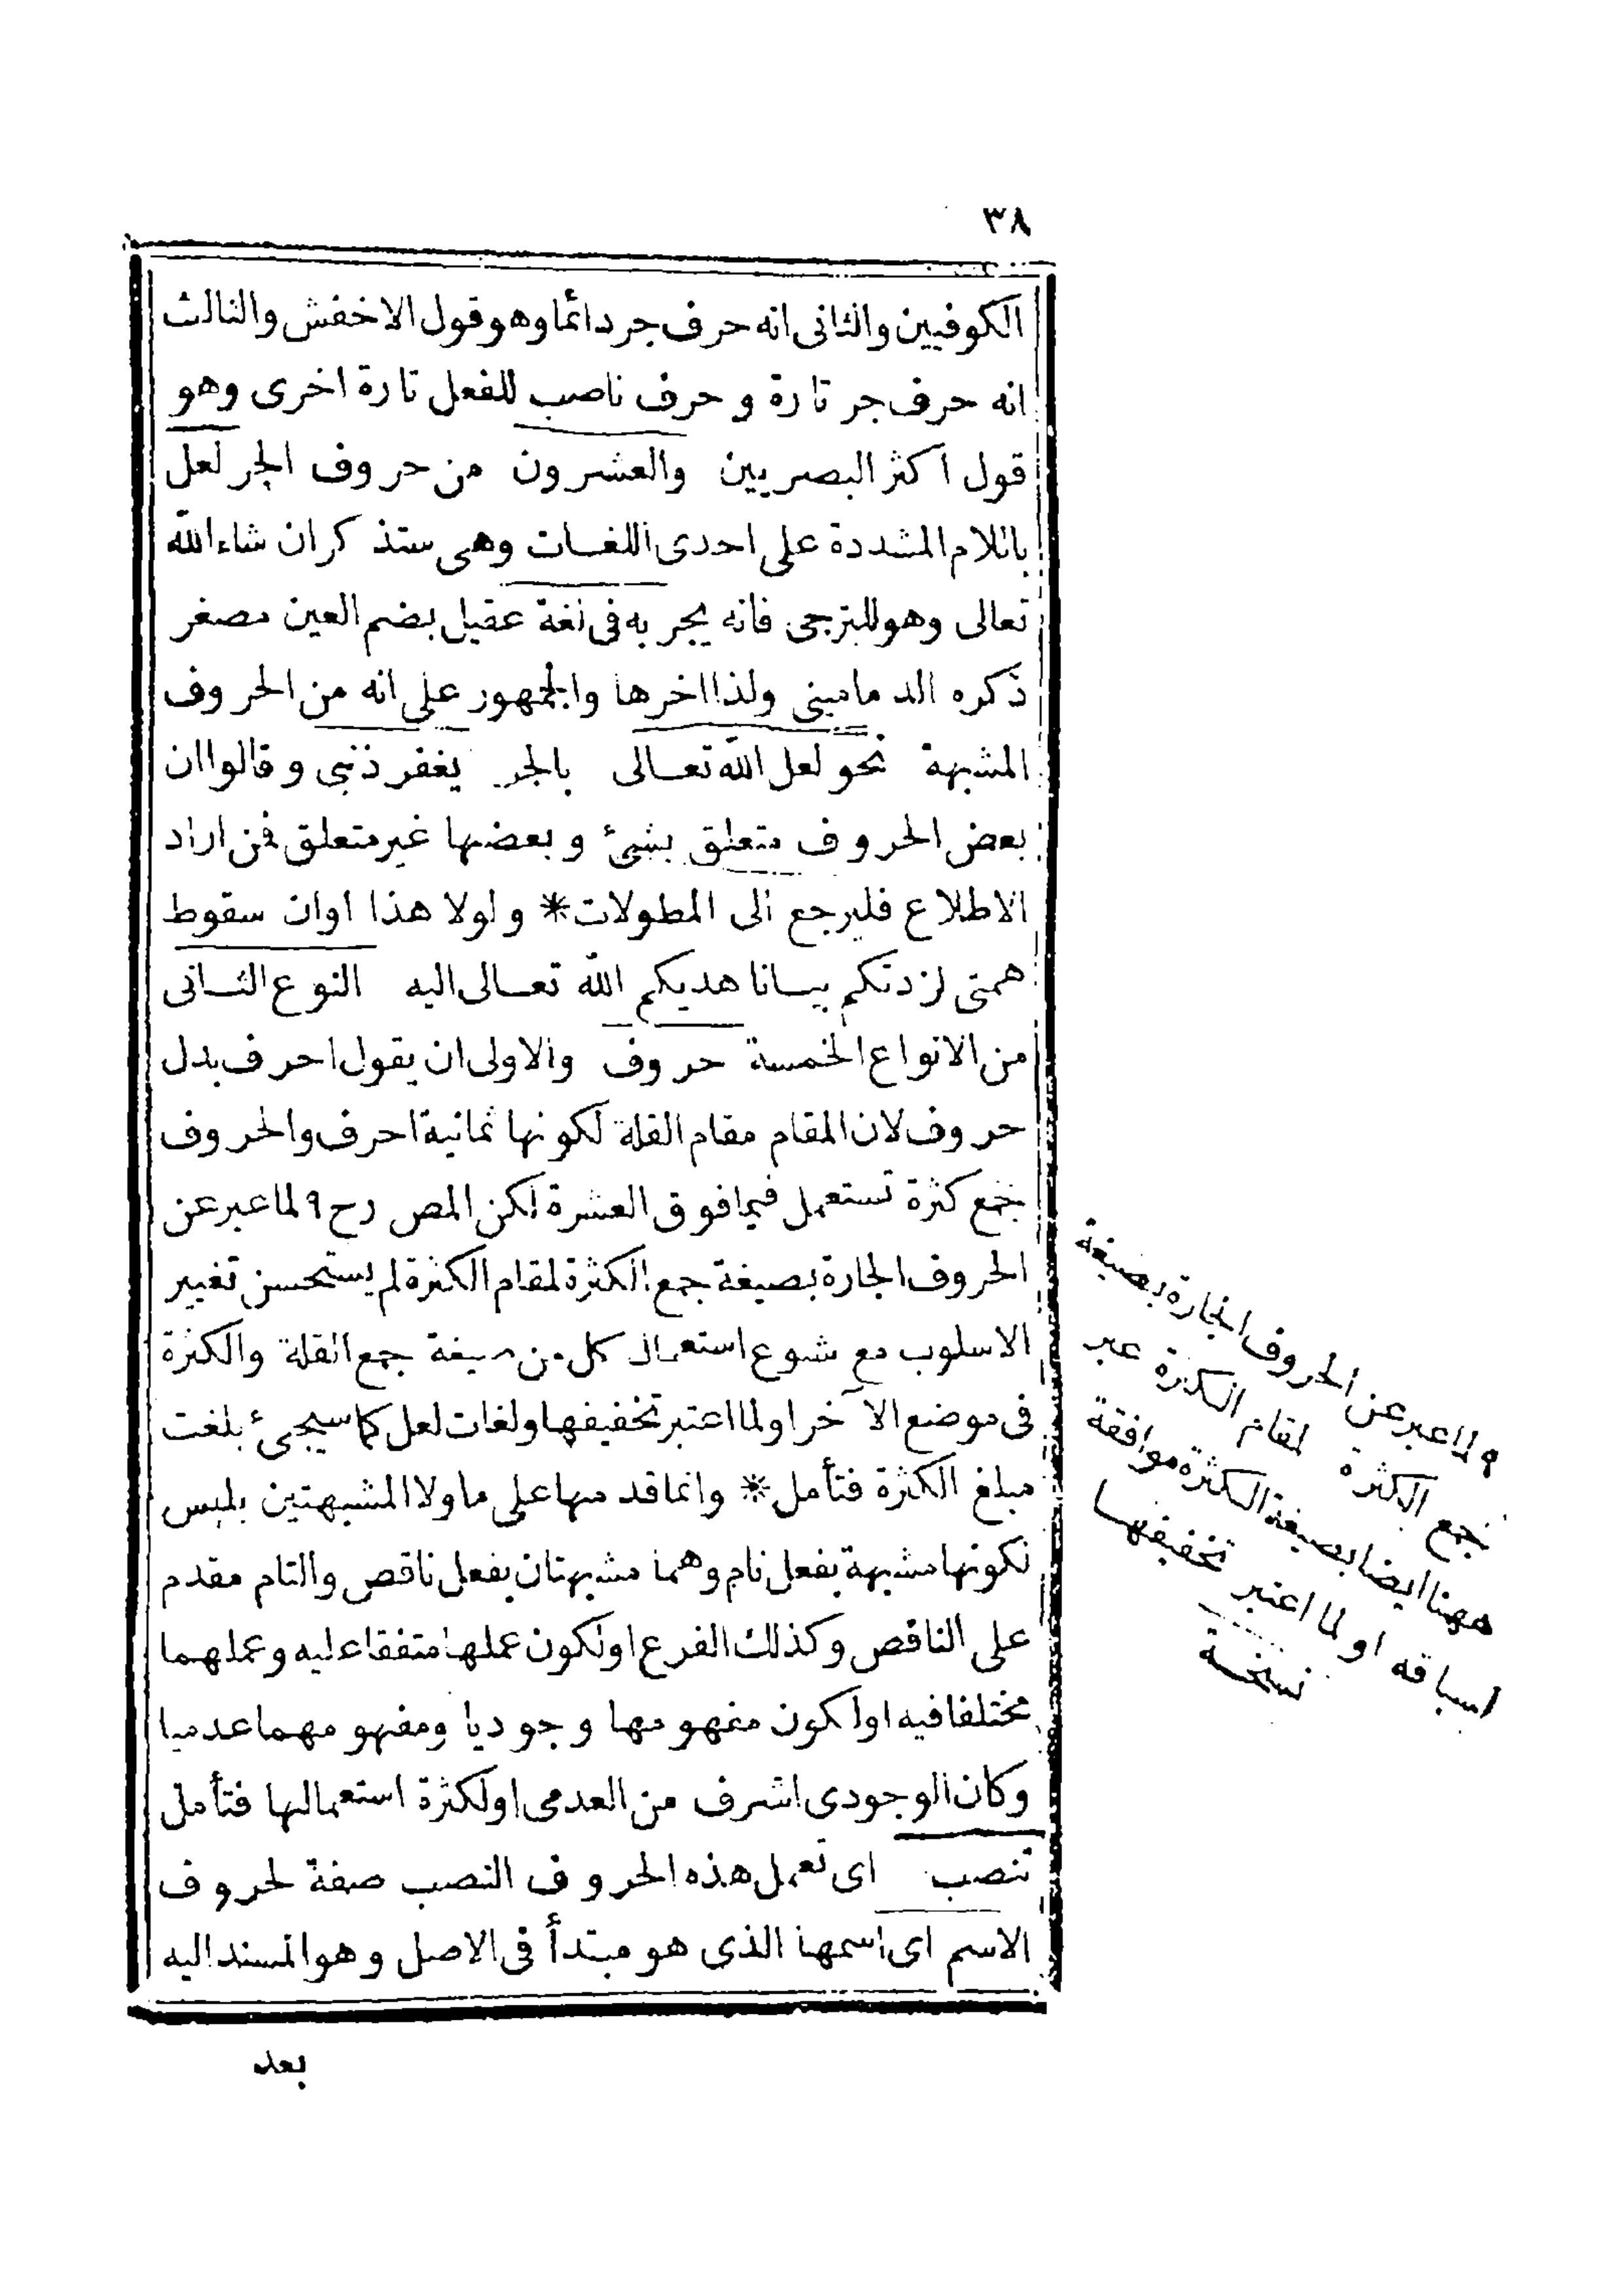 ٣٨
الكوفيين والثانى انه حرف جر دائما وهو قول الاخفش والثالث
انه حرف جر تارة و حرف ناصب للفعل تارة اخرى وهو
قول اكثر البصريين والعشرون من حروف الجر لعل
باللام المشددة على احدى اللغات وهى ستذكر ان شاء الله
تعالى وهو للترجى فانه يجر به فى لغة عقيل بضم العين مصغر
ذكره الدمامينى ولذا اخرها والجمهور على انه من الحروف
المشبهة نحو لعل الله تعالى بالجر يغفر ذنبى و قالوا ان
بعض الحروف متعلق بشئ و بعضها غير متعلق فمن اراد
الاطلاع فليرجع الى المطولات * و لولا هذا اوان سقوط
همتى لزدتكم بيانا هديكم الله تعالى اليه النوع الثانى
من الانواع الخمسة حروف والاولى ان يقول احرف بدل
حروف لان المقام مقام القلة لكونها ثمانية احرف والحروف
جمع كثرة تستعمل فيما فوق العشرة لكن المص رح ٩ لما عبر عن
الحروف الجارة بصيغة جمع الكثرة لمقام الكثرة لم يستحسن تغيير
الاسلوب مع شيوع استعمال كل من صيغة جمع القلة والكثرة
فى موضع الآخر او لما اعتبر تخفيفها ولغات لعل كما سيجئ بلغت
مبلغ الكثرة فتأمل * وانما قدمها على ما ولا المشبهتين بليس
لكونها مشبهة بفعل تام وهما مشبهتان بفعل ناقص والتام مقدم
على الناقص وكذلك الفرع او لكون عملها متفقا عليه وعملهما
مختلفا فيه او لكون مفهومها وجوديا ومفهومهما عدميا
وكان الوجودى اشرف من العدمى او لكثرة استعمالها فتأمل
تنصب اى تعمل هذه الحروف النصب صفة لحروف
الاسم اى اسمها الذى هو مبتدأ فى الاصل وهو المسند اليه
بعد
٩ لما عبر عن الحروف الجارة بصيغة
جمع الكثرة لمقام الكثرة عبر
ههنا ايضا بصيغة الكثرة موافقة
لسباقه او لما اعتبر تخفيفها
نسخة